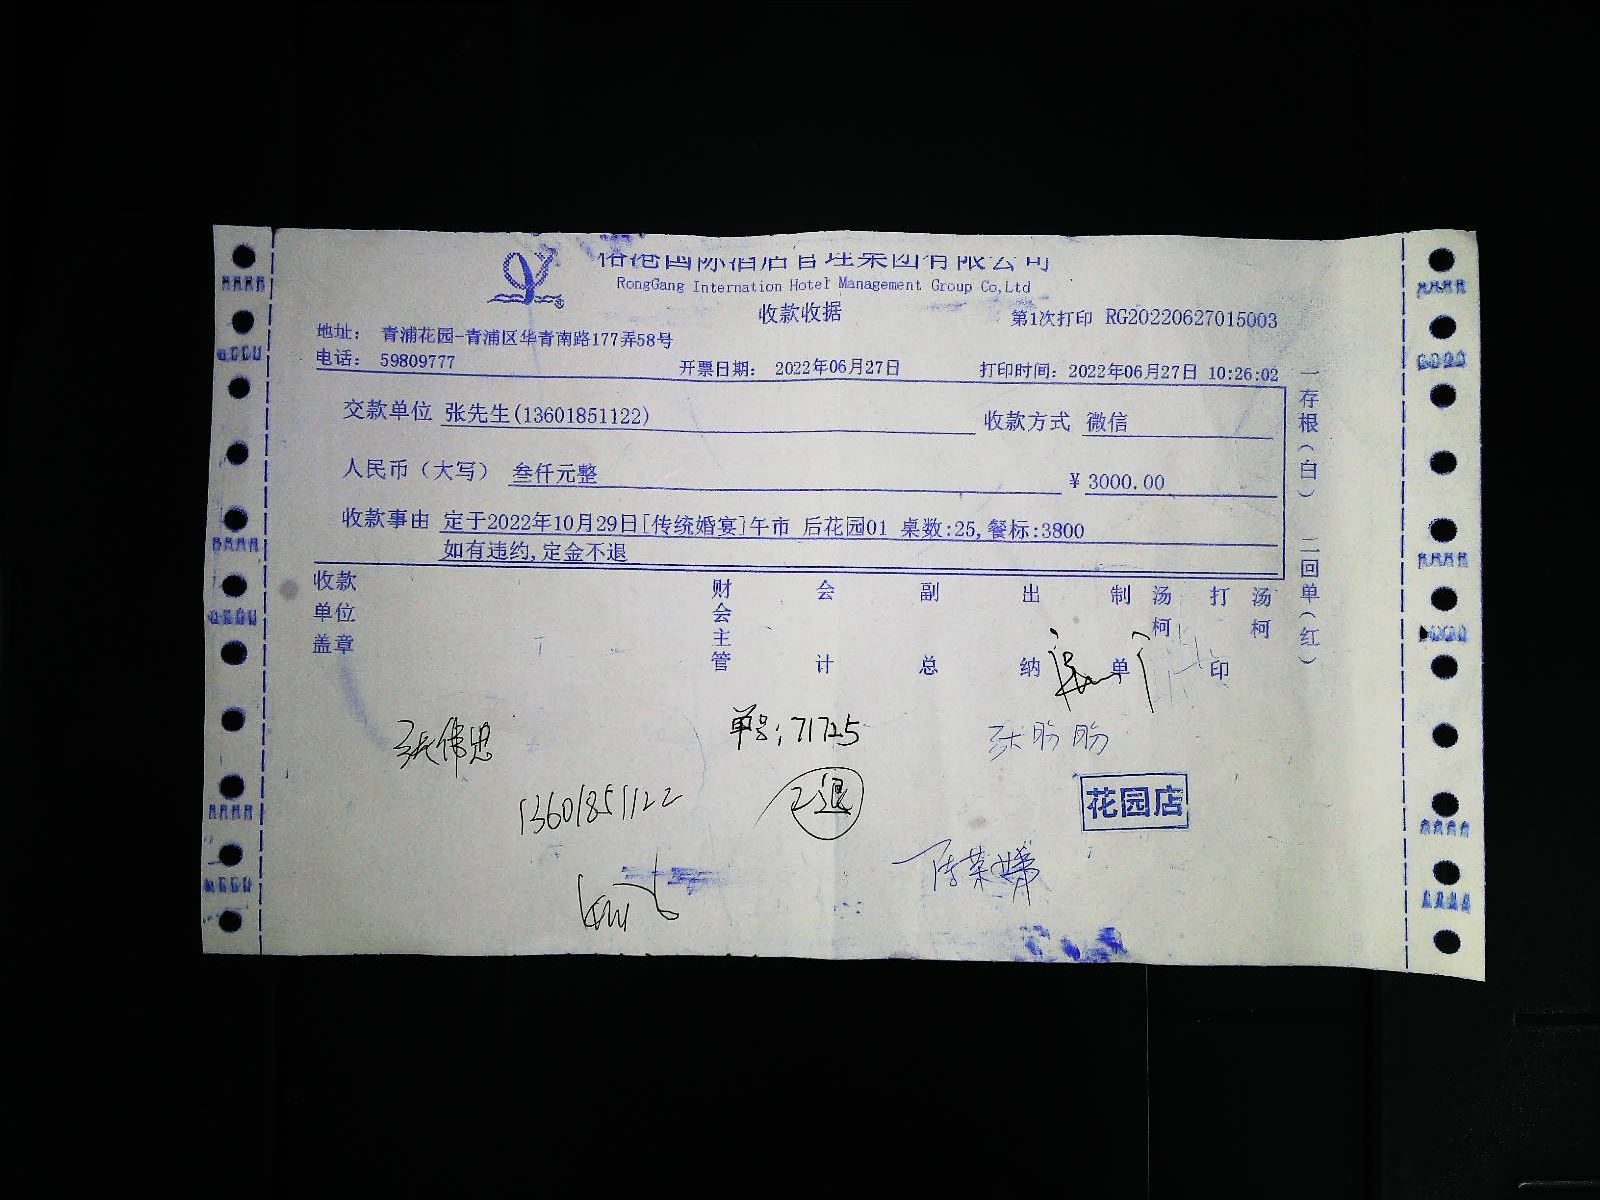 裕港国际酒店管理集团有限公司
RongGang Internation Hotel Management Group Co,Ltd
收款收据
第1次打印 RG20220627015003
地址： 青浦花园-青浦区华青南路177弄58号
电话： 59809777
开票日期： 2022年06月27日
打印时间：2022年06月27日 10:26:02
交款单位 张先生(13601851122)
收款方式 微信
人民币（大写） 叁仟元整
￥3000.00
收款事由 定于2022年10月29日[传统婚宴]午市 后花园01 桌数:25,餐标:3800
如有违约,定金不退
一存根（白） 二回单（红）
收款单位盖章
财会主管
会计
副总
出纳
制单
汤柯
打印
汤柯
张伟忠
单号：71725
张盼盼
13601851122
已退
花园店